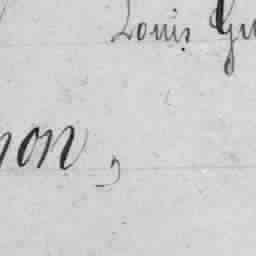 Louis Gu
non,